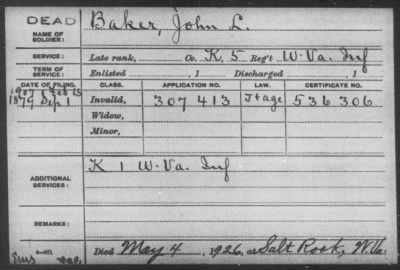 DEAD
NAME OF SOLDIER: Baker, John L.
SERVICE: Late rank, Co. K, 5 Reg't W. Va. Inf
TERM OF SERVICE: Enlisted , 1 Discharged , 1
DATE OF FILING. CLASS. APPLICATION NO. LAW. CERTIFICATE NO.
1907 Feb 13
1879 Sep 1 Invalid, 307 413 J + age 536 306
Widow,
Minor,
ADDITIONAL SERVICES: K 1 W. Va. Inf
REMARKS:
Died May 4, 1926, at Salt Rock, W. Va.